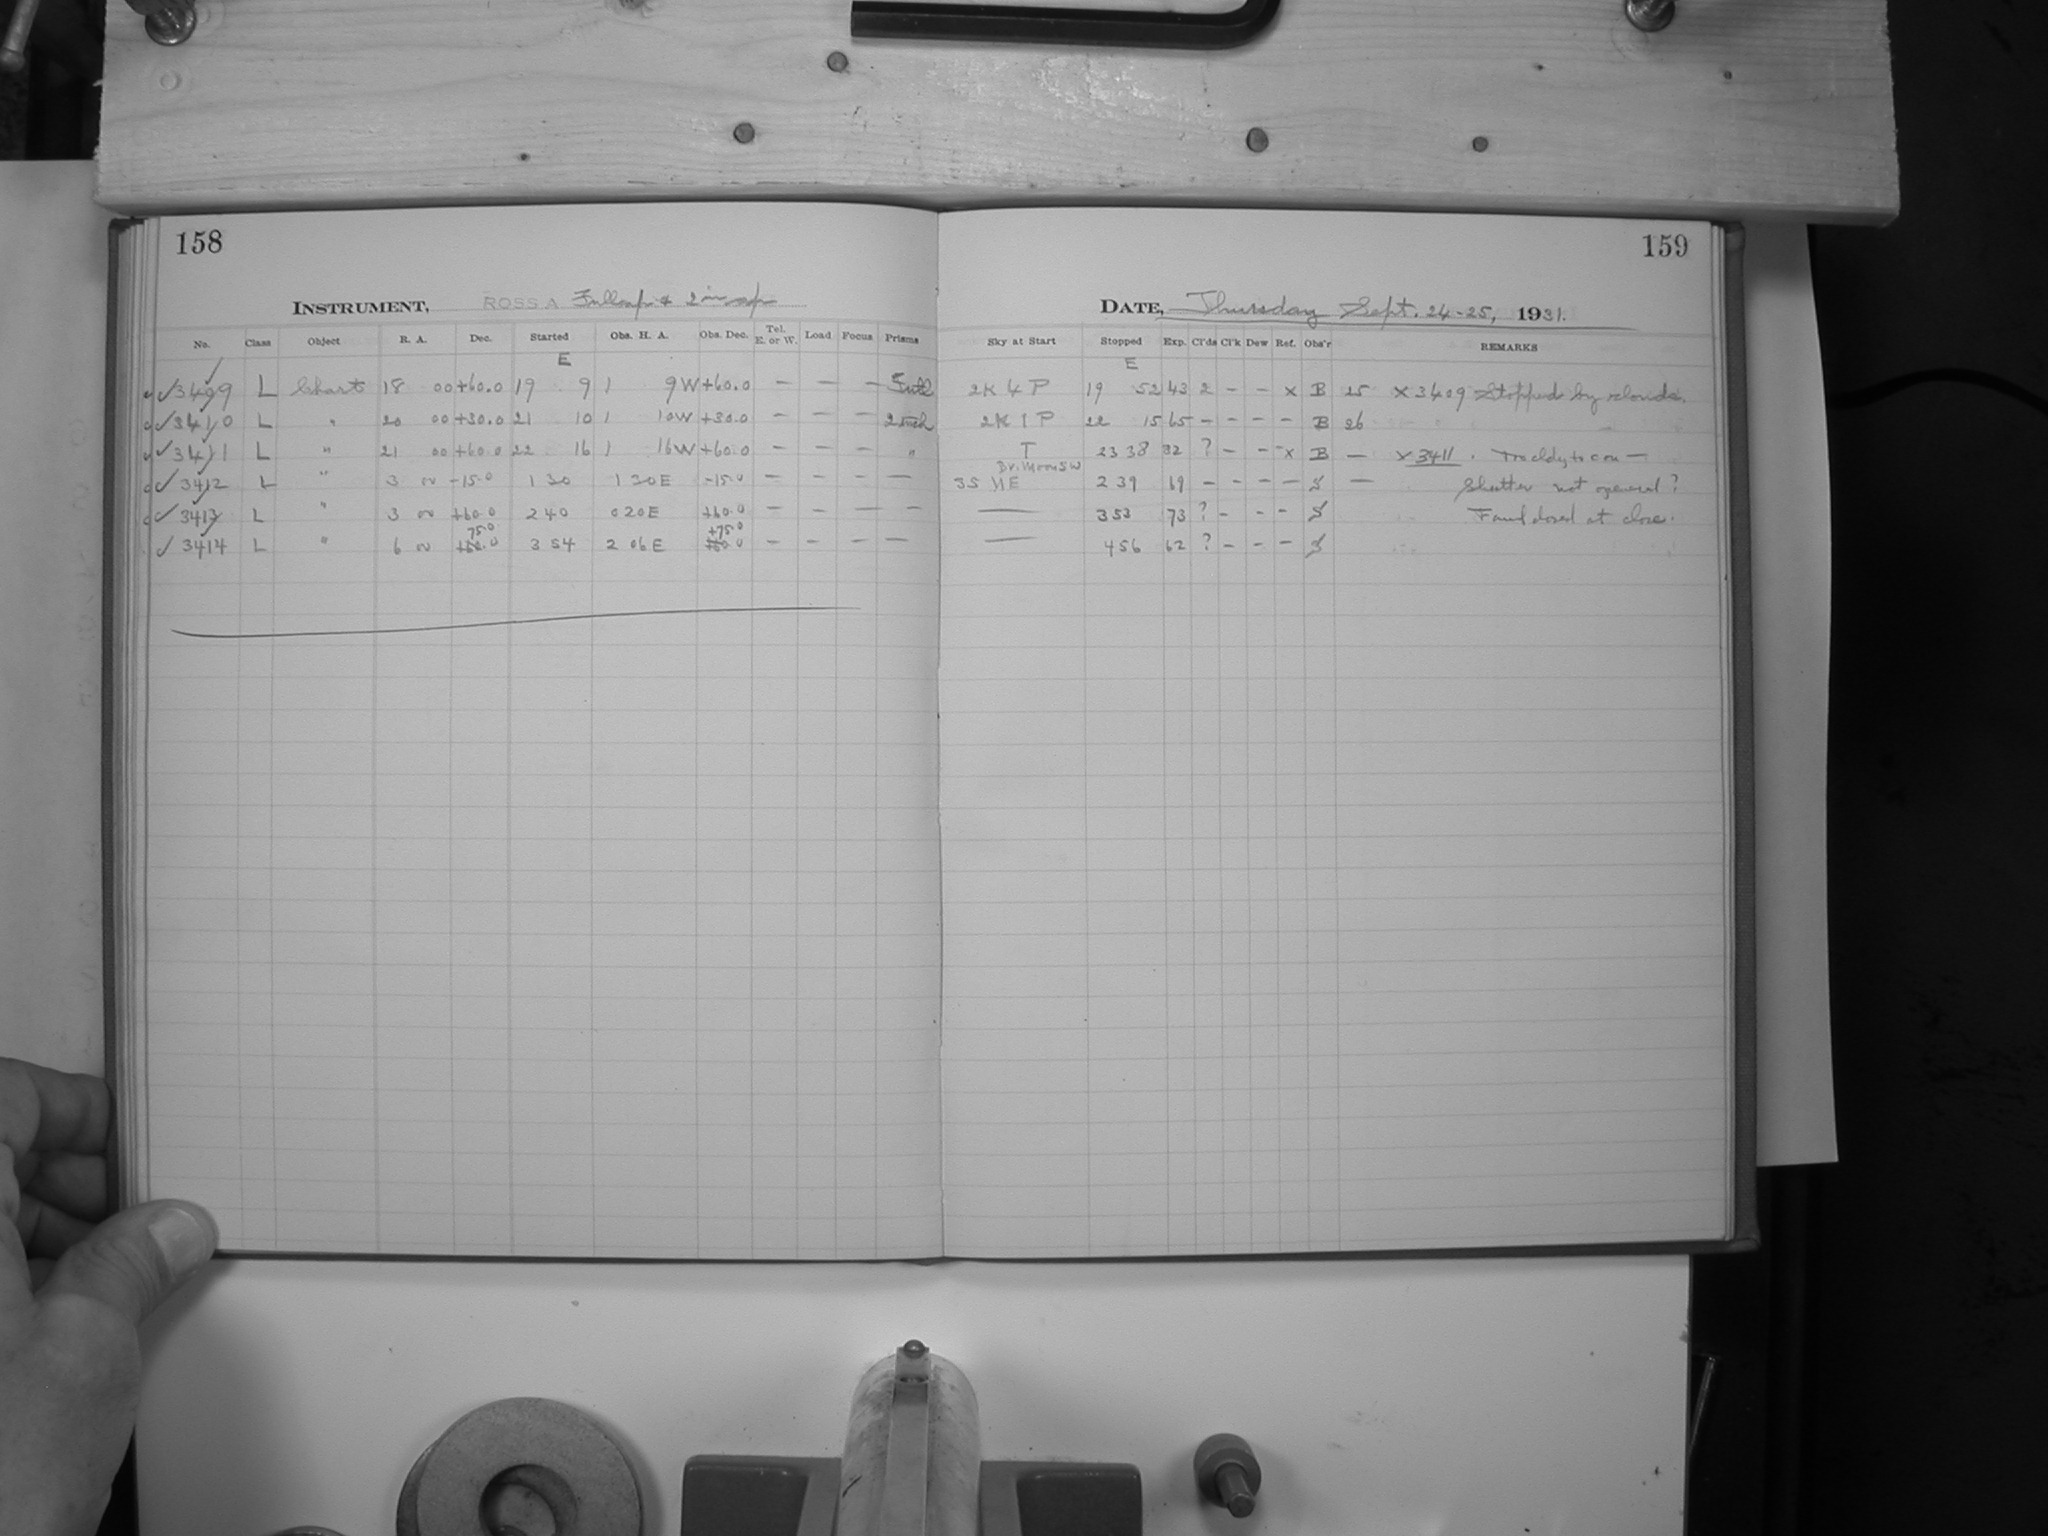 158
INSTRUMENT, ROSS A Full ap & 2 in ap
No. Class Object R. A. Dec. Started Obs. H. A. Obs. Dec. Tel. E. or W. Load Focus Prisms
E
✓3409 L Chart 18 00 +60.0 19 9 1 9W +60.0 — — — Full
✓3410 L " 20 00 +30.0 21 10 1 10W +30.0 — — — 2 inch
✓3411 L " 21 00 +60.0 22 16 1 16W +60.0 — — — "
✓3412 L " 3 00 -15.0 1 30 1 30E -15.0 — — — —
✓3413 L " 3 00 +60.0 2 40 0 20E +60.0 — — — —
75.0 +75.0
✓3414 L " 6 00 +60.0 3 54 2 06E +60.0 — — — —
159
DATE, Thursday Sept. 24-25, 1931.
Sky at Start Stopped Exp. Cl'ds Cl'k Dew Ref. Obs'r REMARKS
E
2K 4 P 19 52 43 2 — — x B 25 x 3409 Stopped by clouds.
2K 1 P 22 15 65 — — — — B 26
T 23 38 82 ? — — x B — x 3411.
Br. Moon SW
3S NE 2 39 69 — — — — S — Shutter not opened?
— 3 53 73 ? — — — S Found closed at close.
— 4 56 62 ? — — — S